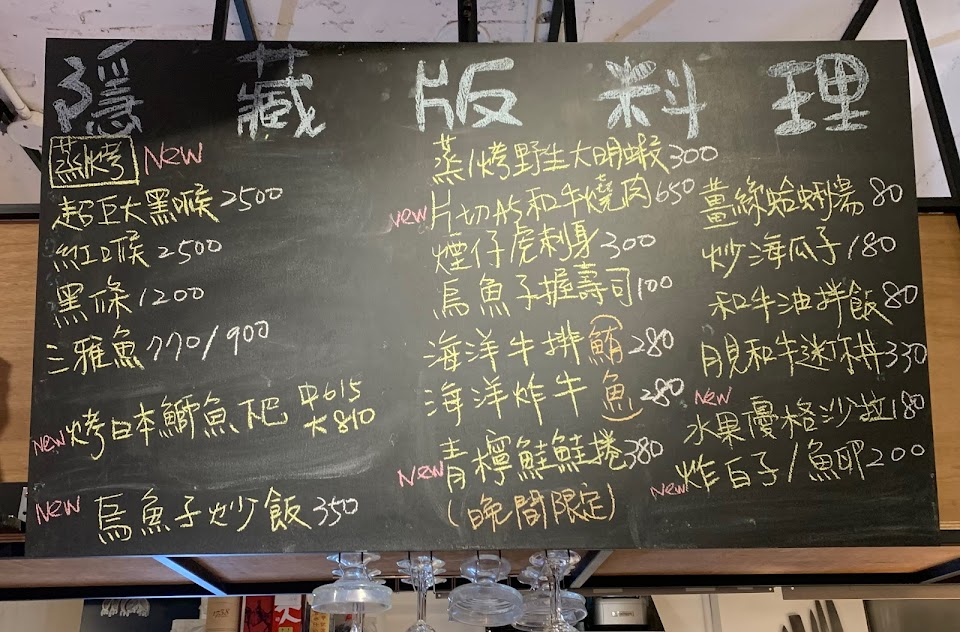 隱藏版料理
蒸/烤 New
超巨大黑喉2500
紅喉2500
黑條1200
三雅魚770/900
New烤日本鰤魚下巴 中615
大810
New 烏魚子炒飯350
蒸/烤野生大明蝦300
new片切A5和牛燒肉650
煙仔虎刺身300
烏魚子握壽司100
海洋牛排(鮪280
海洋炸牛 魚)280
New青檸鮭鮭捲380
(晚間限定)
薑絲蛤蜊湯80
炒海瓜子180
和牛油拌飯80
月見和牛迷你丼330
New
水果優格沙拉180
New炸白子/魚卵200